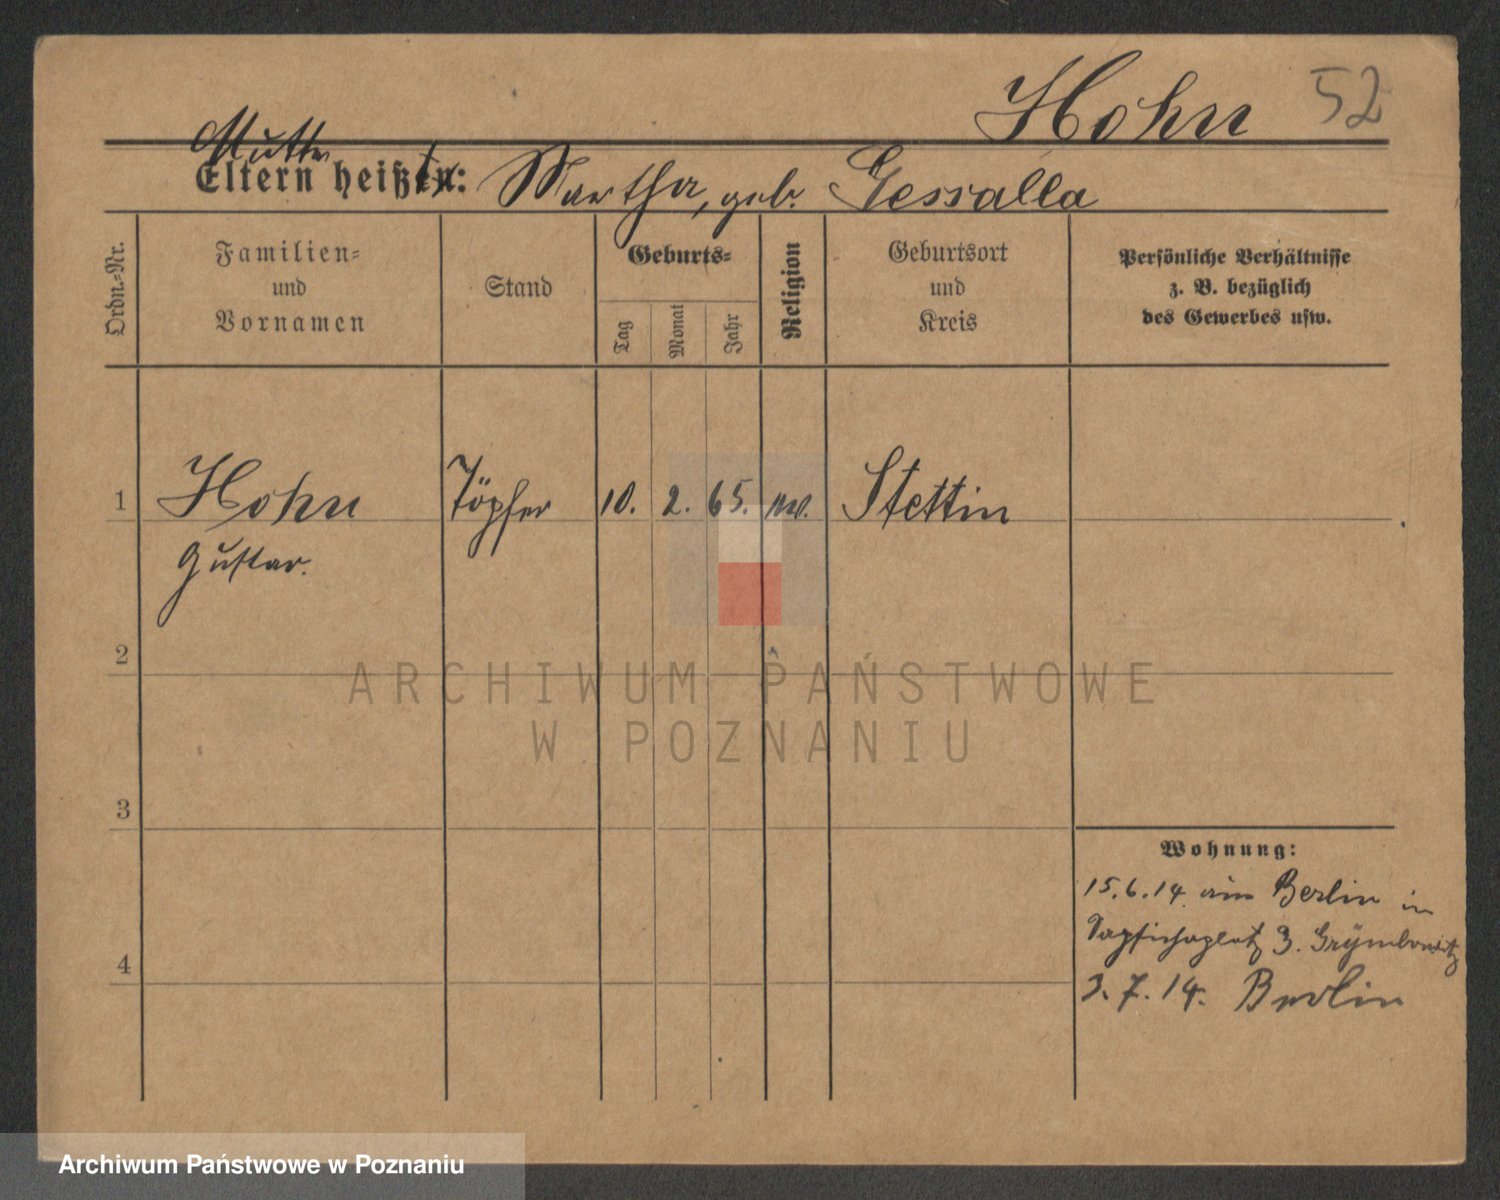 Hohn 52
Mutter
Eltern heißen: Martha, geb. Gessalla
Ordn.-Nr.
Familien-
und
Vornamen
Stand
Geburts-
Tag
Monat
Jahr
Religion
Geburtsort
und
Kreis
Persönliche Verhältnisse
z. B. bezüglich
des Gewerbes usw.
1 Hohn Töpfer 10. 2. 65. Stettin
Gustav.
2
ARCHIWUM PAŃSTWOWE
W POZNANIU
3
Wohnung:
15.6.14 aus Berlin in
3.
4
3.7.14. Berlin
Archiwum Państwowe w Poznaniu